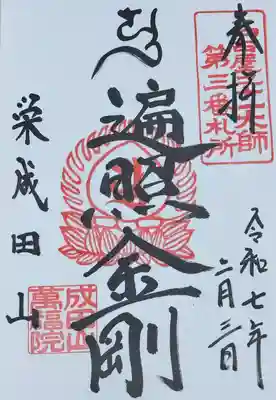 奉拝
大師
第三番札所
令和七年
二月三日
遍照金剛
栄成田山
成田山
萬福院